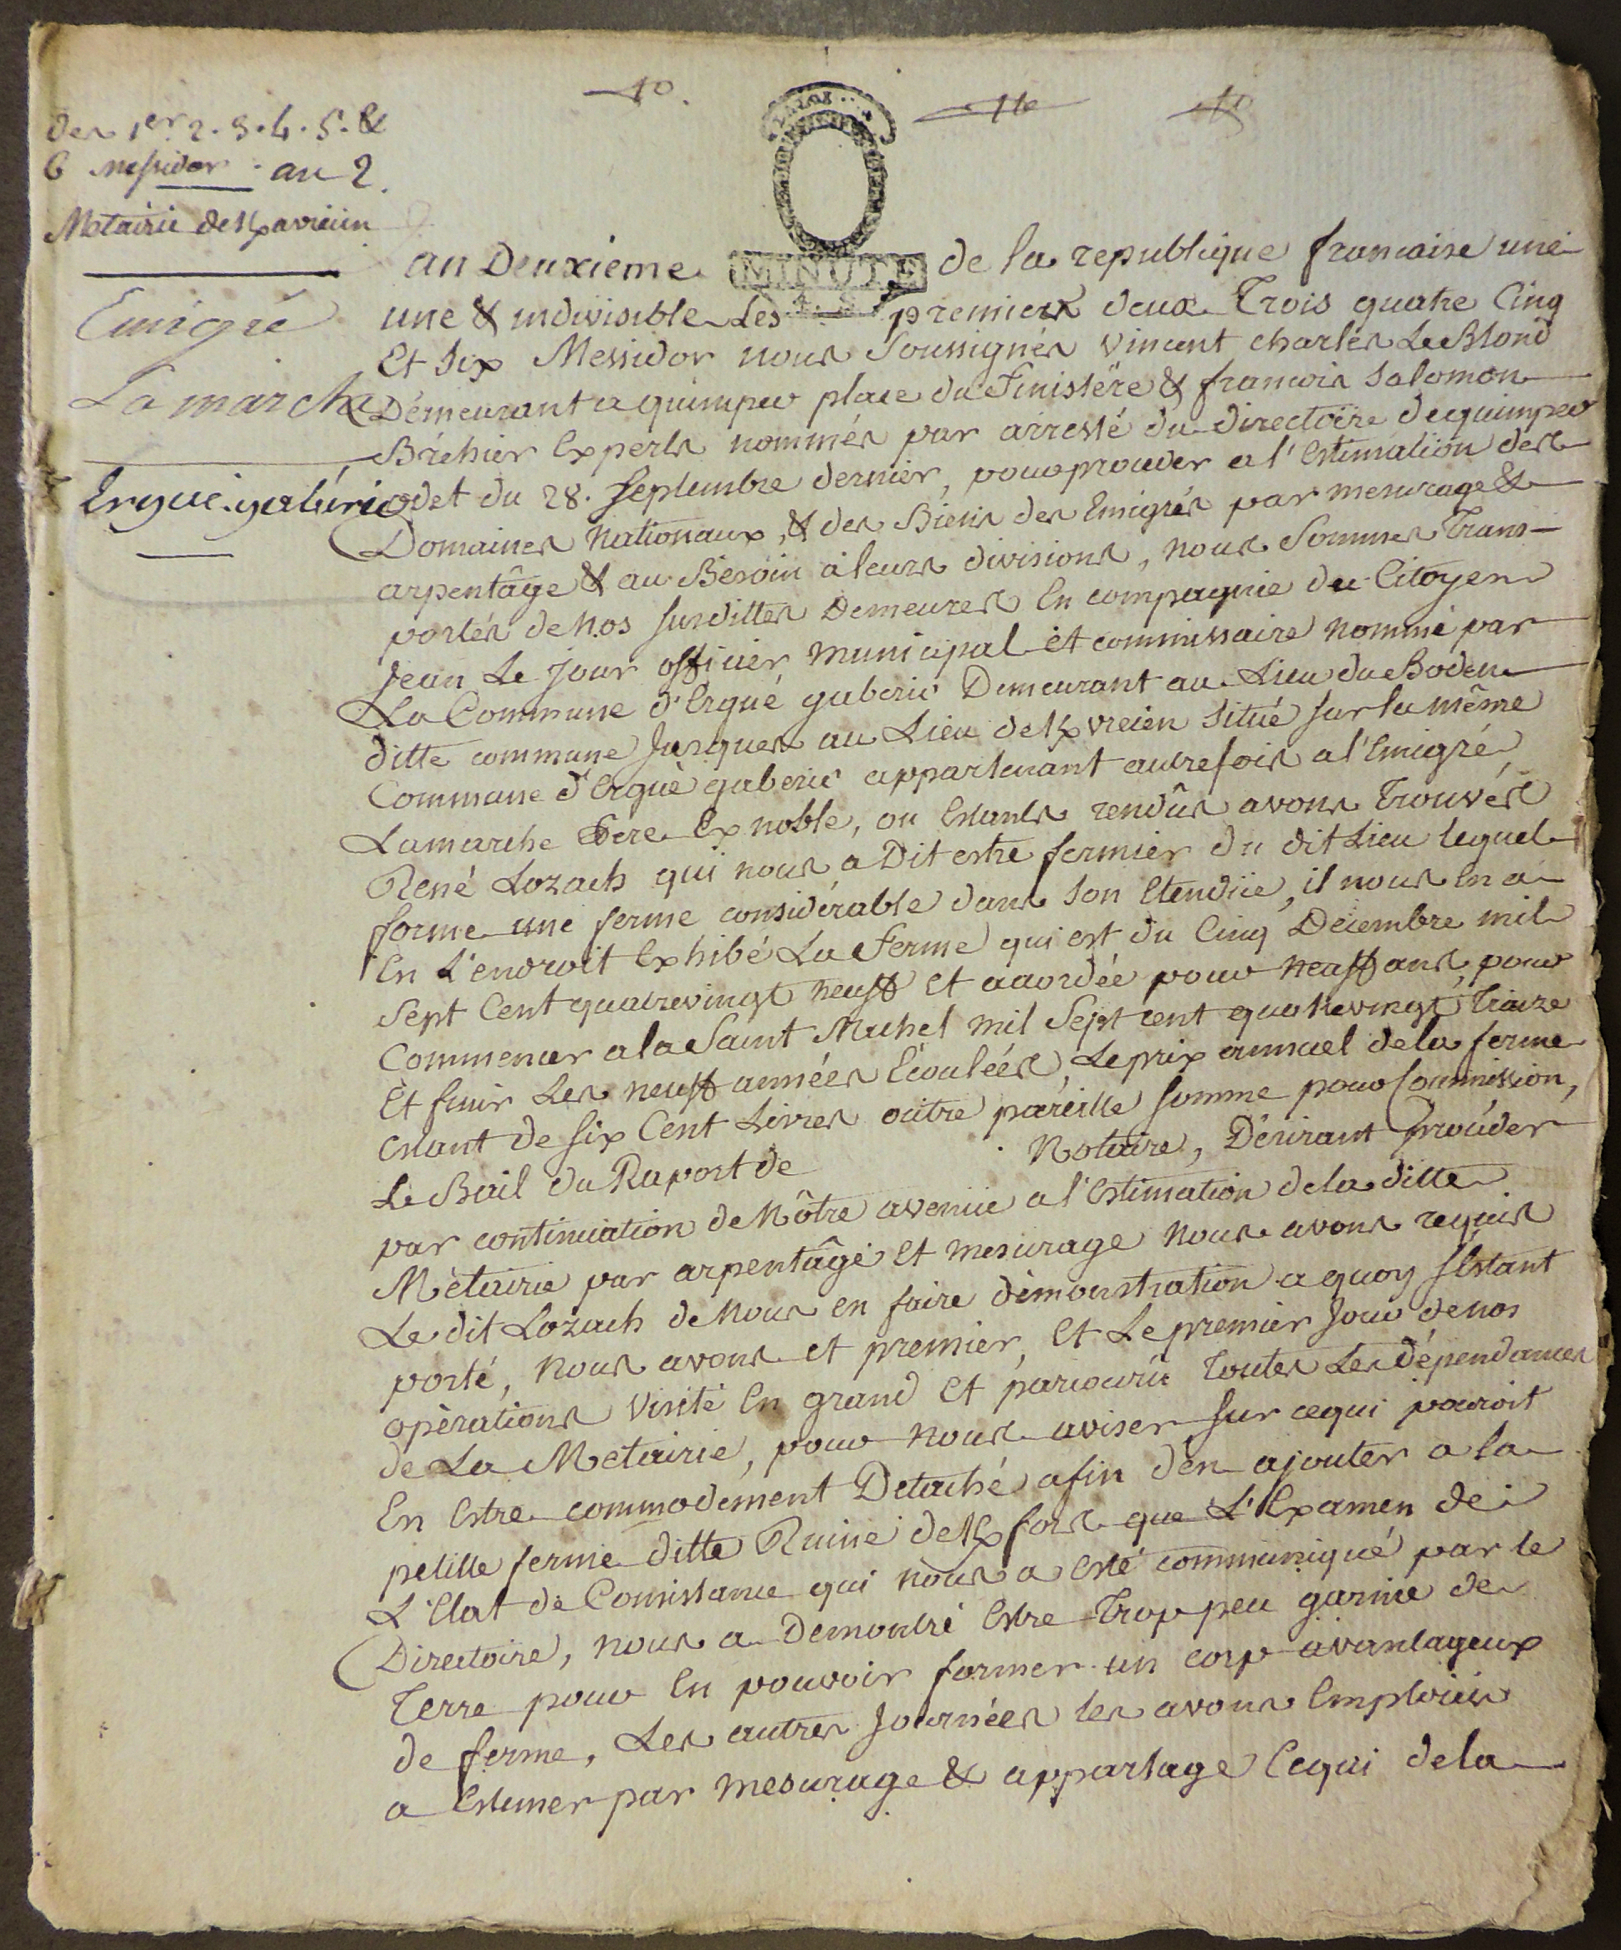 10.
11e
10
des 1er 2. 3. 4. 5. &
6 messidor an 2.
Métairie de Kxavrieun
Emigré
Lamarche
Ergué-gabéric
LA LOI
MINUTE
4. S.
an Deuxieme de la republique francaise une
une & indivisible Les premier deux Trois quatre Cinq
Et Six Messidor nous Soussignés vincent charles Le Blond
Démeurant a quimper place du Finistère & francois Salomon
Bréhier Experts nommés par arresté du directoire de quimper
odet du 28. Septembre dernier, pour proceder a l'Estimation des
Domaines Nationaux, & des Biens des Emigrés par mesurage &
arpentâge & au Besoin à leurs divisions, nous Sommes Trans-
portés de Nos susdittes Demeures En compagnie du Citoyen
Jean Le Jour officier municipal et commissaire nommé par
La Commune d'Ergué gaberic Demeurant au Lieu du Boden
ditte commune Jusques au Lieu de Kxvreien Situé sur la même
Commune d'Ergué gaberic appartenant autrefois a l'Emigré
Lamarche Pere Ex noble, ou Estants rendûs avons Trouvés
René Lozach qui nous a Dit estre fermier du dit Lieu lequel
forme une ferme considérable dans son Etendüe, il nous En a
En L'endroit Exhibé La Ferme qui est du Cinq Décembre mil
Sept Cent quatrevingt neuff et acordée pour neuff ans, pour
Commencer a la Saint Michel mil Sept cent quatrevingt Traize
Et finir Les neuff années Ecoulées, Le prix annuel de la ferme
Estant de Six Cent Livres outre pareille somme pour Commission,
Le Bail du Raport de Notaire, Désirant Proceder
par continuation de Nôtre avenüe a l'Estimation de la ditte
Métairie par arpentâge et mesurage nous avons requis
Le dit Lozach de Nous en faire démonstration a quoy s'Estant
porté, nous avons et premier, Et Le premier Jour de nos
opèrations visité En grand Et parcouru Toutes Les dépendances
de La Métairie, pour nous aviser sur ce qui pouroit
En Estre commodement Detaché afin d'en ajouter a la
petitte ferme ditte Ruine de Kxfors que L'Examen de
L'Etat de Consistance qui nous a esté communiqué par le
Directoire, nous a Demontré Estre Trop peu garnie de
Terre pour En pouvoir former un corp avantageux
de ferme, Les autres Journées les avons Emploiés
a Estimer par mesurage & appartage Ce qui de la